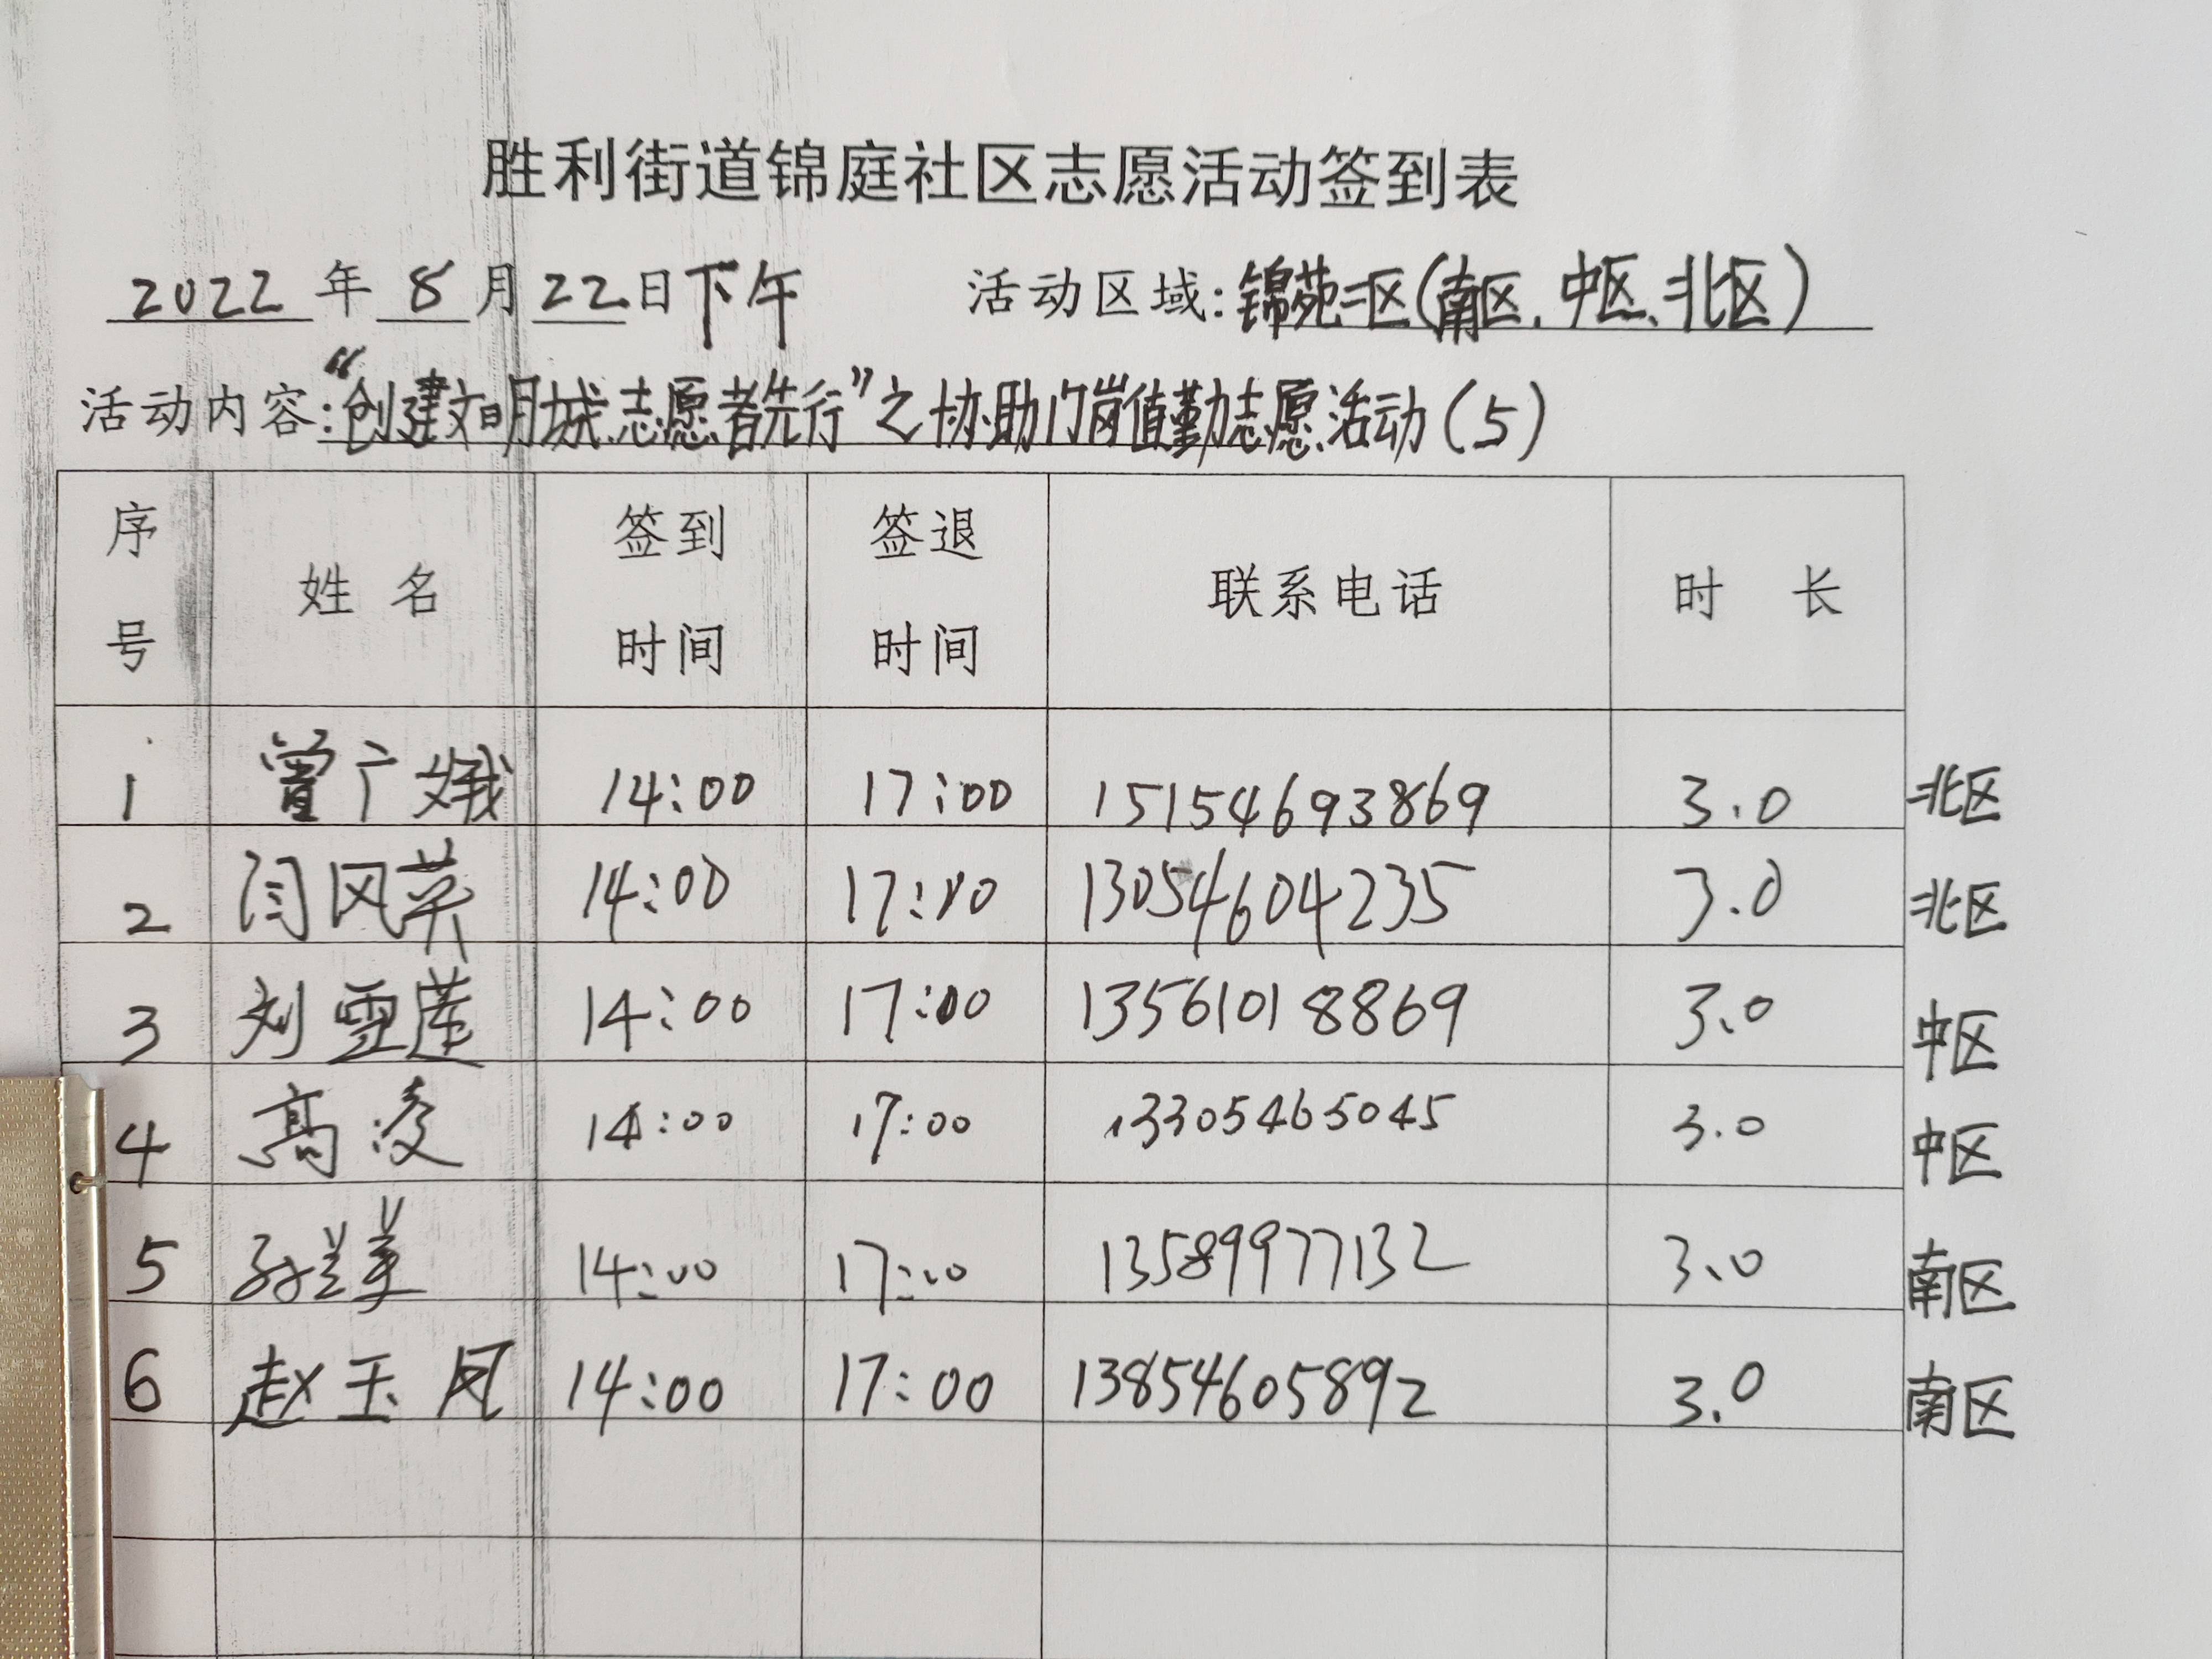 胜利街道锦庭社区志愿活动签到表
2022年8月22日下午 活动区域:锦苑三区(南区、中区、北区)
活动内容:“创建文明城、志愿者先行”之协助门岗值勤志愿活动(5)
序号 姓名 签到时间 签退时间 联系电话 时长
1 曾广娥 14:00 17:00 15154693869 3.0 北区
2 闫风英 14:00 17:00 13054604235 3.0 北区
3 刘雪莲 14:00 17:00 13561018869 3.0 中区
4 高凌 14:00 17:00 13305465045 3.0 中区
5 孙 14:00 17:00 13589977132 3.0 南区
6 赵玉凤 14:00 17:00 13854605892 3.0 南区